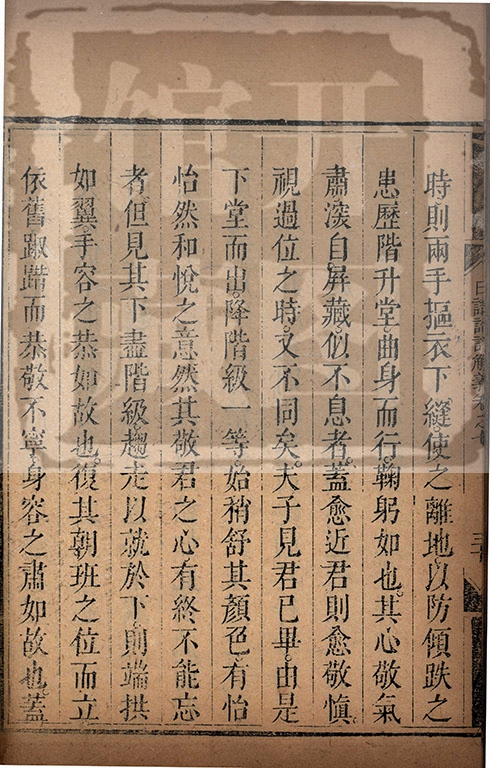 時則兩手摳衣下縫使之離地以防傾跌之
患歷階升堂曲身而行鞠躬如也其心敬氣
肅深自屏藏似不息者蓋愈近君則愈敬慎
視過位之時又不同矣夫子見君已畢由是
下堂而出降階級一等始稍舒其顏色有怡
怡然和悅之意然其敬君之心有終不能忘
者但見其下盡階級趨走以就於下則端拱
如翼手容之恭如故也復其朝班之位而立
依舊踧踖而恭敬不寧身容之肅如故也蓋